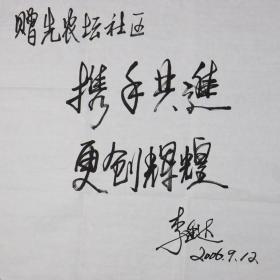 赠先农坛社区
携手共進
更创辉煌
李
2006.9.12.